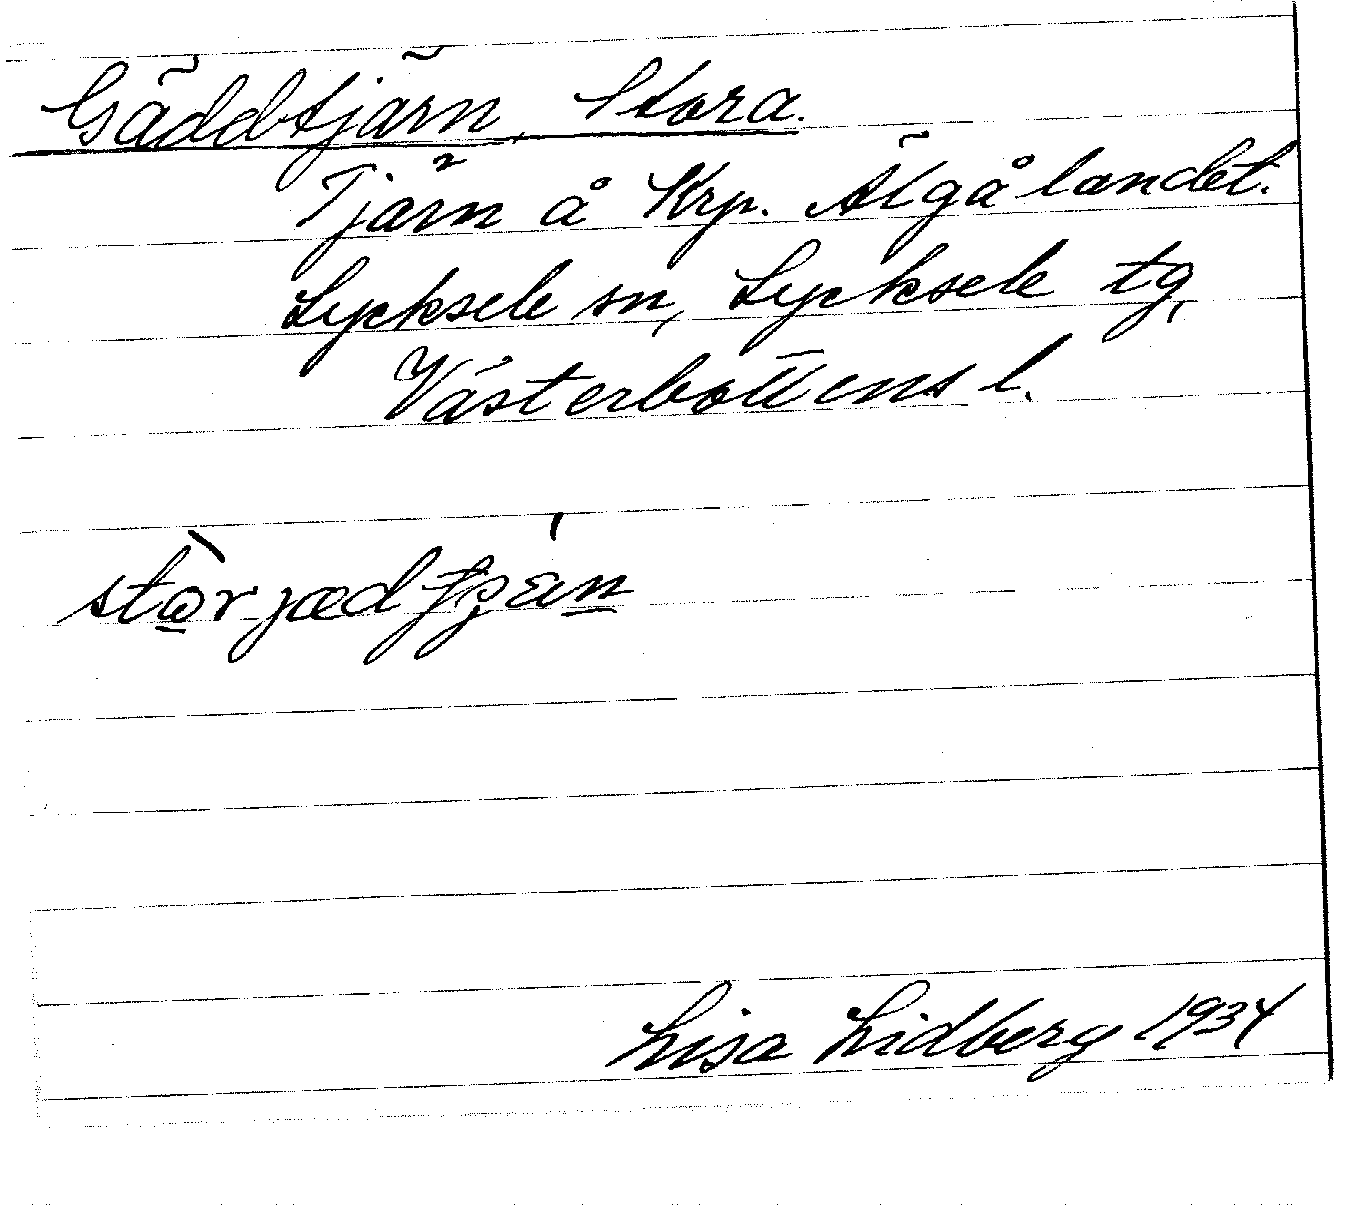 Gäddtjärn, Stora.
Tjärn å Krp. Älgålandet.
Lycksele sn, Lycksele tg,
Västerbottens l.
Lisa Lidberg 1934